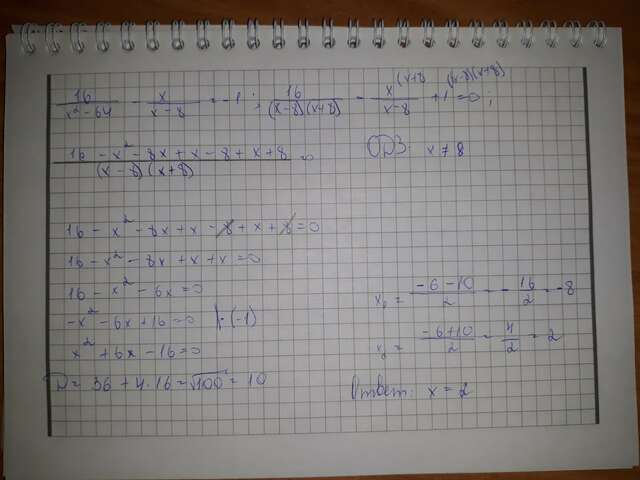 16/(x²-64) - x/(x-8) = -1 ; 16/((x-8)(x+8)) - x/(x-8) (x+8 + 1 (x-8)(x+8) = 0 ;
(16 - x² - 8x + x - 8 + x + 8)/((x-8)(x+8)) = 0 ОДЗ: x ≠ 8
16 - x² - 8x + x - 8 + x + 8 = 0
16 - x² - 8x + x + x = 0
16 - x² - 6x = 0
-x² - 6x + 16 = 0 |·(-1)
x² + 6x - 16 = 0
D = 36 + 4·16 = √100 = 10
x₁ = (-6-10)/2 = -16/2 = -8
x₂ = (-6+10)/2 = 4/2 = 2
Ответ: x = 2